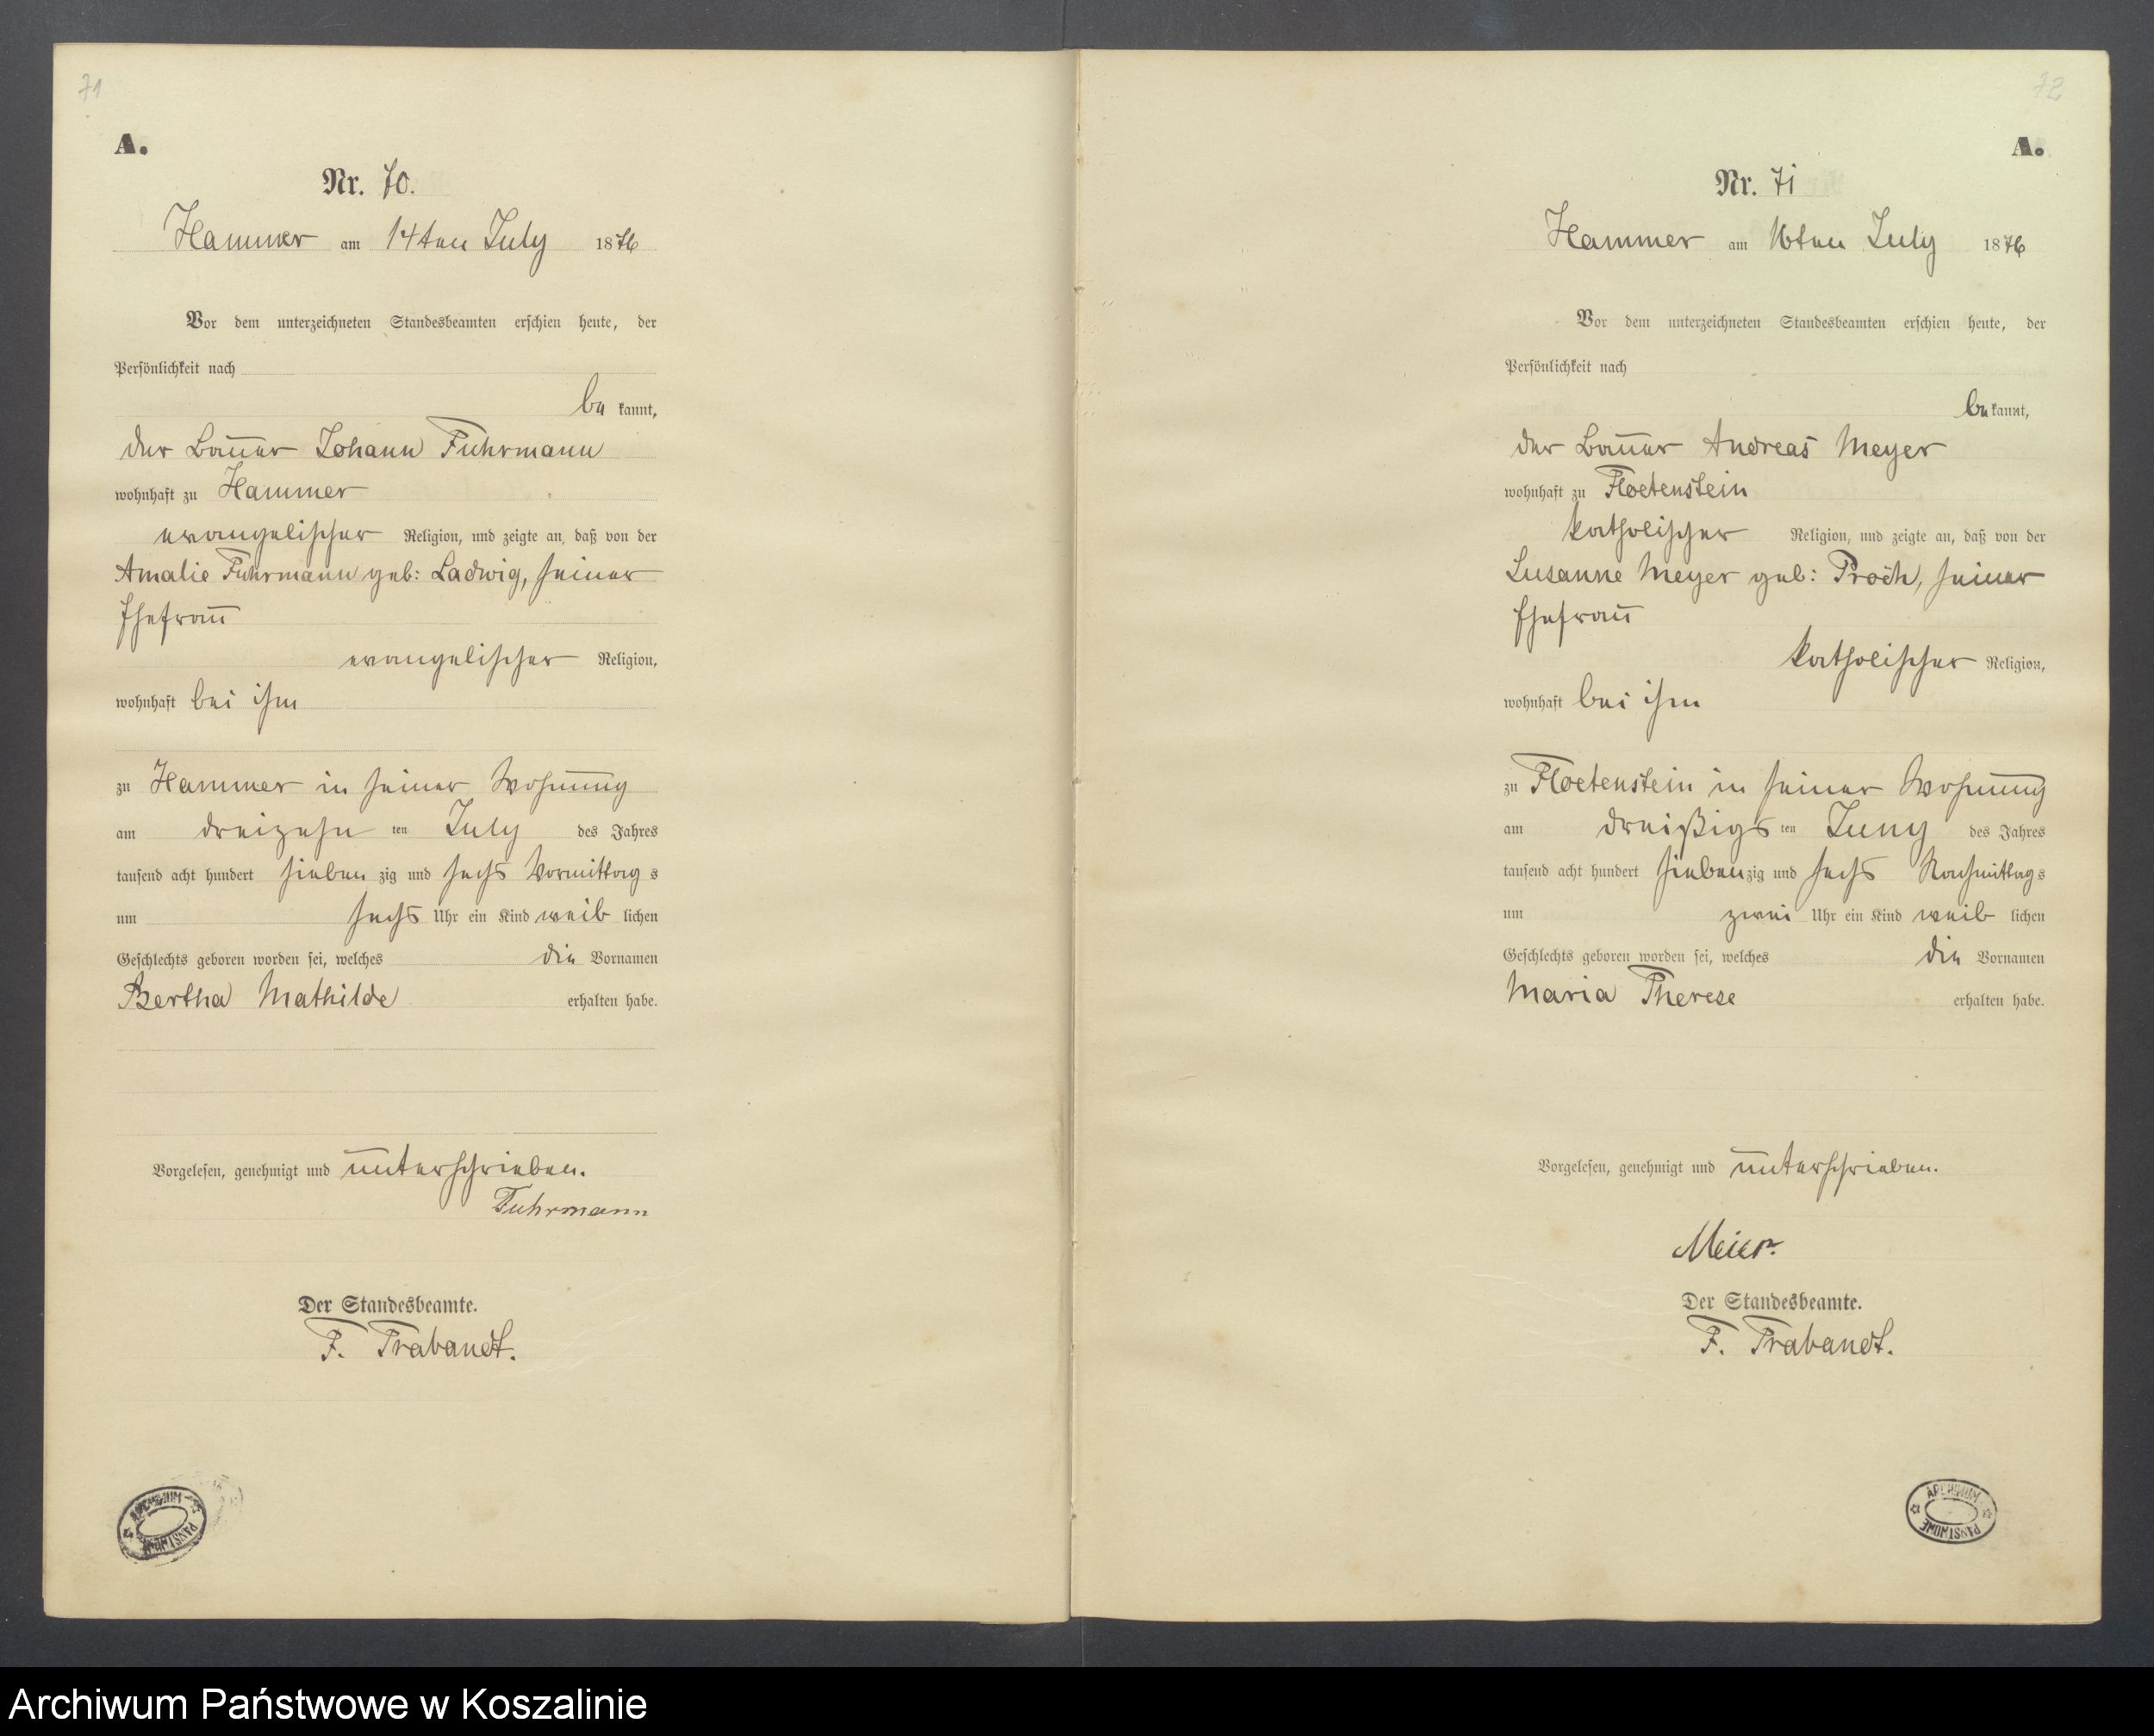 71
A.
Nr. 70.
Hammer am 14ten July 1876
Vor dem unterzeichneten Standesbeamten erschien heute, der
Persönlichkeit nach
be kannt,
der Bauer Johann Fuhrmann
wohnhaft zu Hammer
evangelischer Religion, und zeigte an, daß von der
Amalie Fuhrmann geb: Ladwig, seiner
Ehefrau
evangelischer Religion,
wohnhaft bei ihm
zu Hammer in seiner Wohnung
am dreizehn ten July des Jahres
tausend acht hundert sieben zig und sechs Vormittag s
um sechs Uhr ein Kind weib lichen
Geschlechts geboren worden sei, welches die Vornamen
Bertha Mathilde erhalten habe.
Vorgelesen, genehmigt und unterschrieben.
Fuhrmann
Der Standesbeamte.
F. Trabandt.
ARCHIWUM PAŃSTWOWE
72
A.
Nr. 71
Hammer am 16ten July 1876
Vor dem unterzeichneten Standesbeamten erschien heute, der
Persönlichkeit nach
be kannt,
der Bauer Andreas Meyer
wohnhaft zu Floetenstein
katholischer Religion, und zeigte an, daß von der
Susanne Meyer geb: Proch, seiner
Ehefrau
katholischer Religion,
wohnhaft bei ihm
zu Floetenstein in seiner Wohnung
am dreißigs ten Juny des Jahres
tausend acht hundert sieben zig und sechs Nachmittag s
um zwei Uhr ein Kind weib lichen
Geschlechts geboren worden sei, welches die Vornamen
Maria Therese erhalten habe.
Vorgelesen, genehmigt und unterschrieben.
Meier.
Der Standesbeamte.
F. Trabandt.
ARCHIWUM PAŃSTWOWE
Archiwum Państwowe w Koszalinie